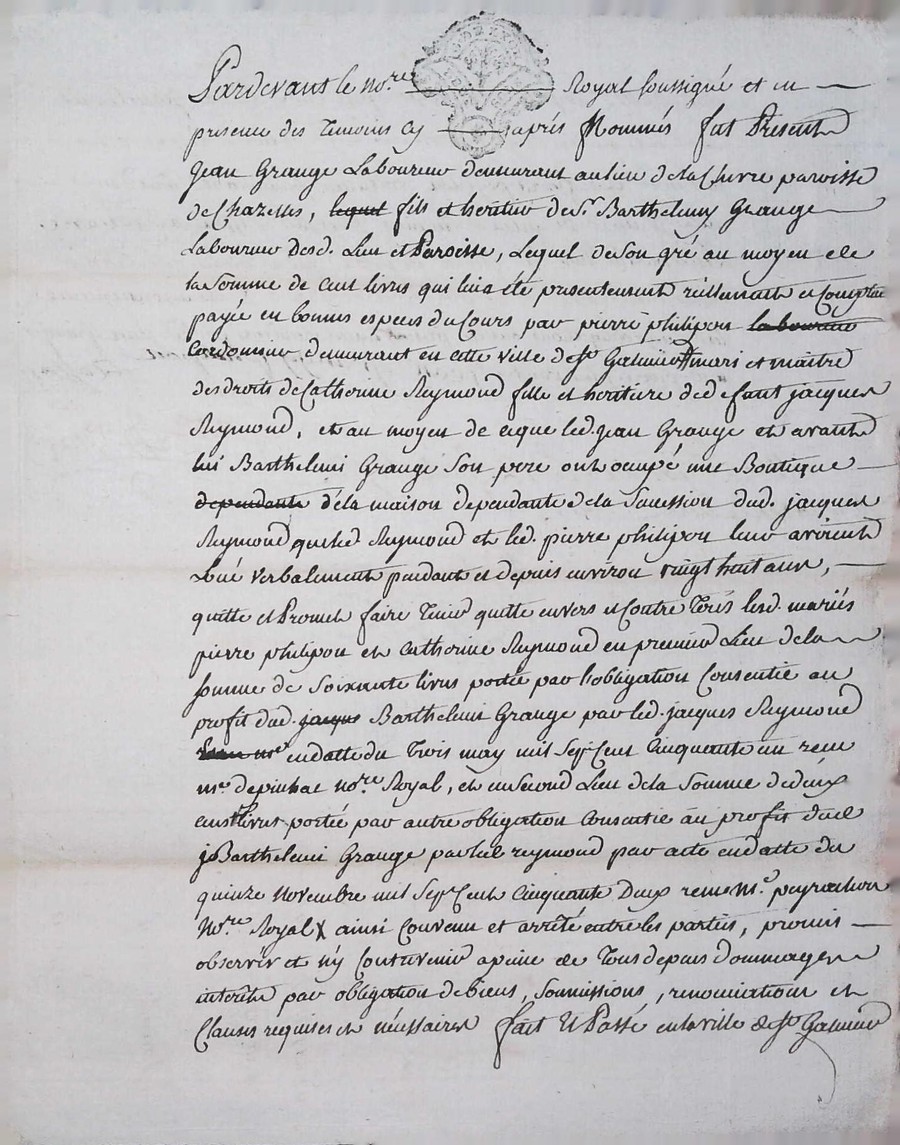 Pardevant le no.re Royal soussigné et en
presence des temoins cy aprés Nommés fut Present
jean Grange Laboureur demeurant au lieu de la paroisse
de Chazelles, lequel fils et heritier de S.r Barthelemy Grange
Laboureur desd. Lieu et Paroisse, Lequel de son gré au moyen de
la Somme de cent livres qui lui a été presentement réellement et Comptant
payée en bonnes especes du Cours par pierre philipon laboureur
Cordonnier demeurant en cette ville de S.t Galmier mari et maitre
des droits de Catherine Reymond fille et heritiere de defunt jacques
Reymond, et au moyen de ce que led. jean Grange et avant
lui Barthelemi Grange Son pere ont occupé une Boutique
dependante de la maison dependante de la Succession dud. jacques
Reymond que led Reymond et led. pierre philipon leur avoient
Loué verbalement pendant et depuis environ vingt huit ans,
quitte et Promet faire tenir quitte envers et Contre Tous lesd. mariés
pierre philipon et Catherine Reymond en premier Lieu de la
somme de Soixante livres portée par l'obligation Consentie au
profit dud. jacques Barthelemi Grange par led. jacques Reymond
m.e en datte du Trois may mil Sept Cent Cinquante un reçue
m.e depinhac no.re Royal, et en second Lieu de la Somme de deux
cent livres portée par autre obligation Consentie au profit dud
Barthelemi Grange par led reymond par acte en datte du
quinze Novembre mil Sept Cent Cinquante Deux reçue M.e peyrachon
No.re Royal X ainsi Convenu et arrêté entre les parties, promis
observer et n'y Contrevenir a peine de Tous depens Dommages
interêts par obligation de biens, Soumissions, renonciations et
Clauses requises et nécessaires fait Et Passé en la ville de S.t Galmier